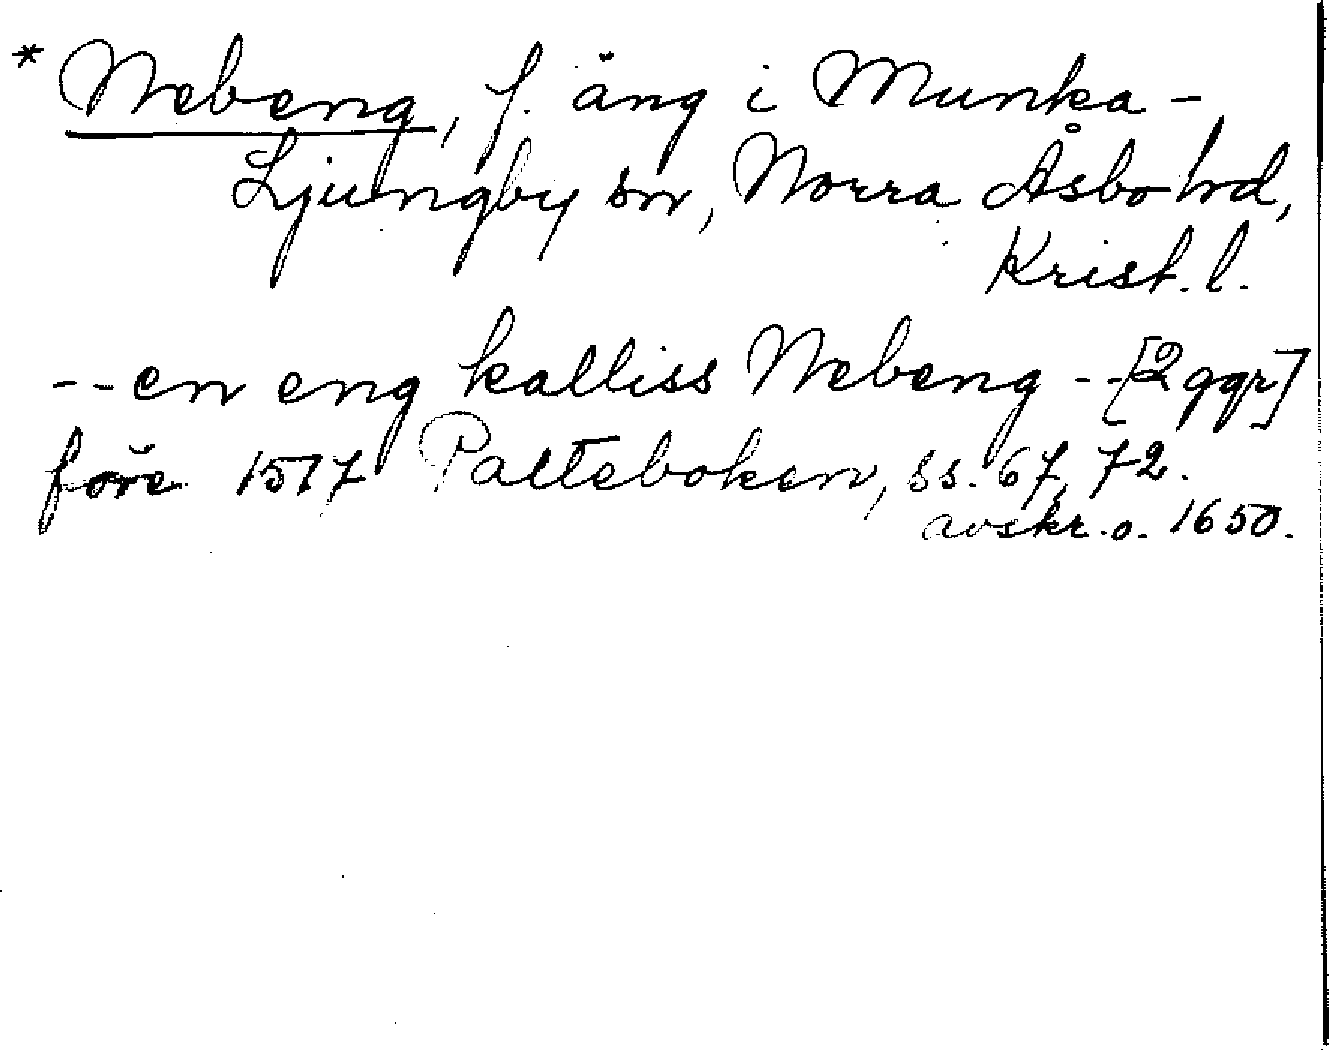 * Nebeng, f. äng i Munka-
Ljungby sn, Norra Åsbo hd,
Krist. l.
-- en eng kalliss Nebeng -- [2 ggr]
före 1517 Palteboken, ss. 67, 72.
avskr. o. 1650.